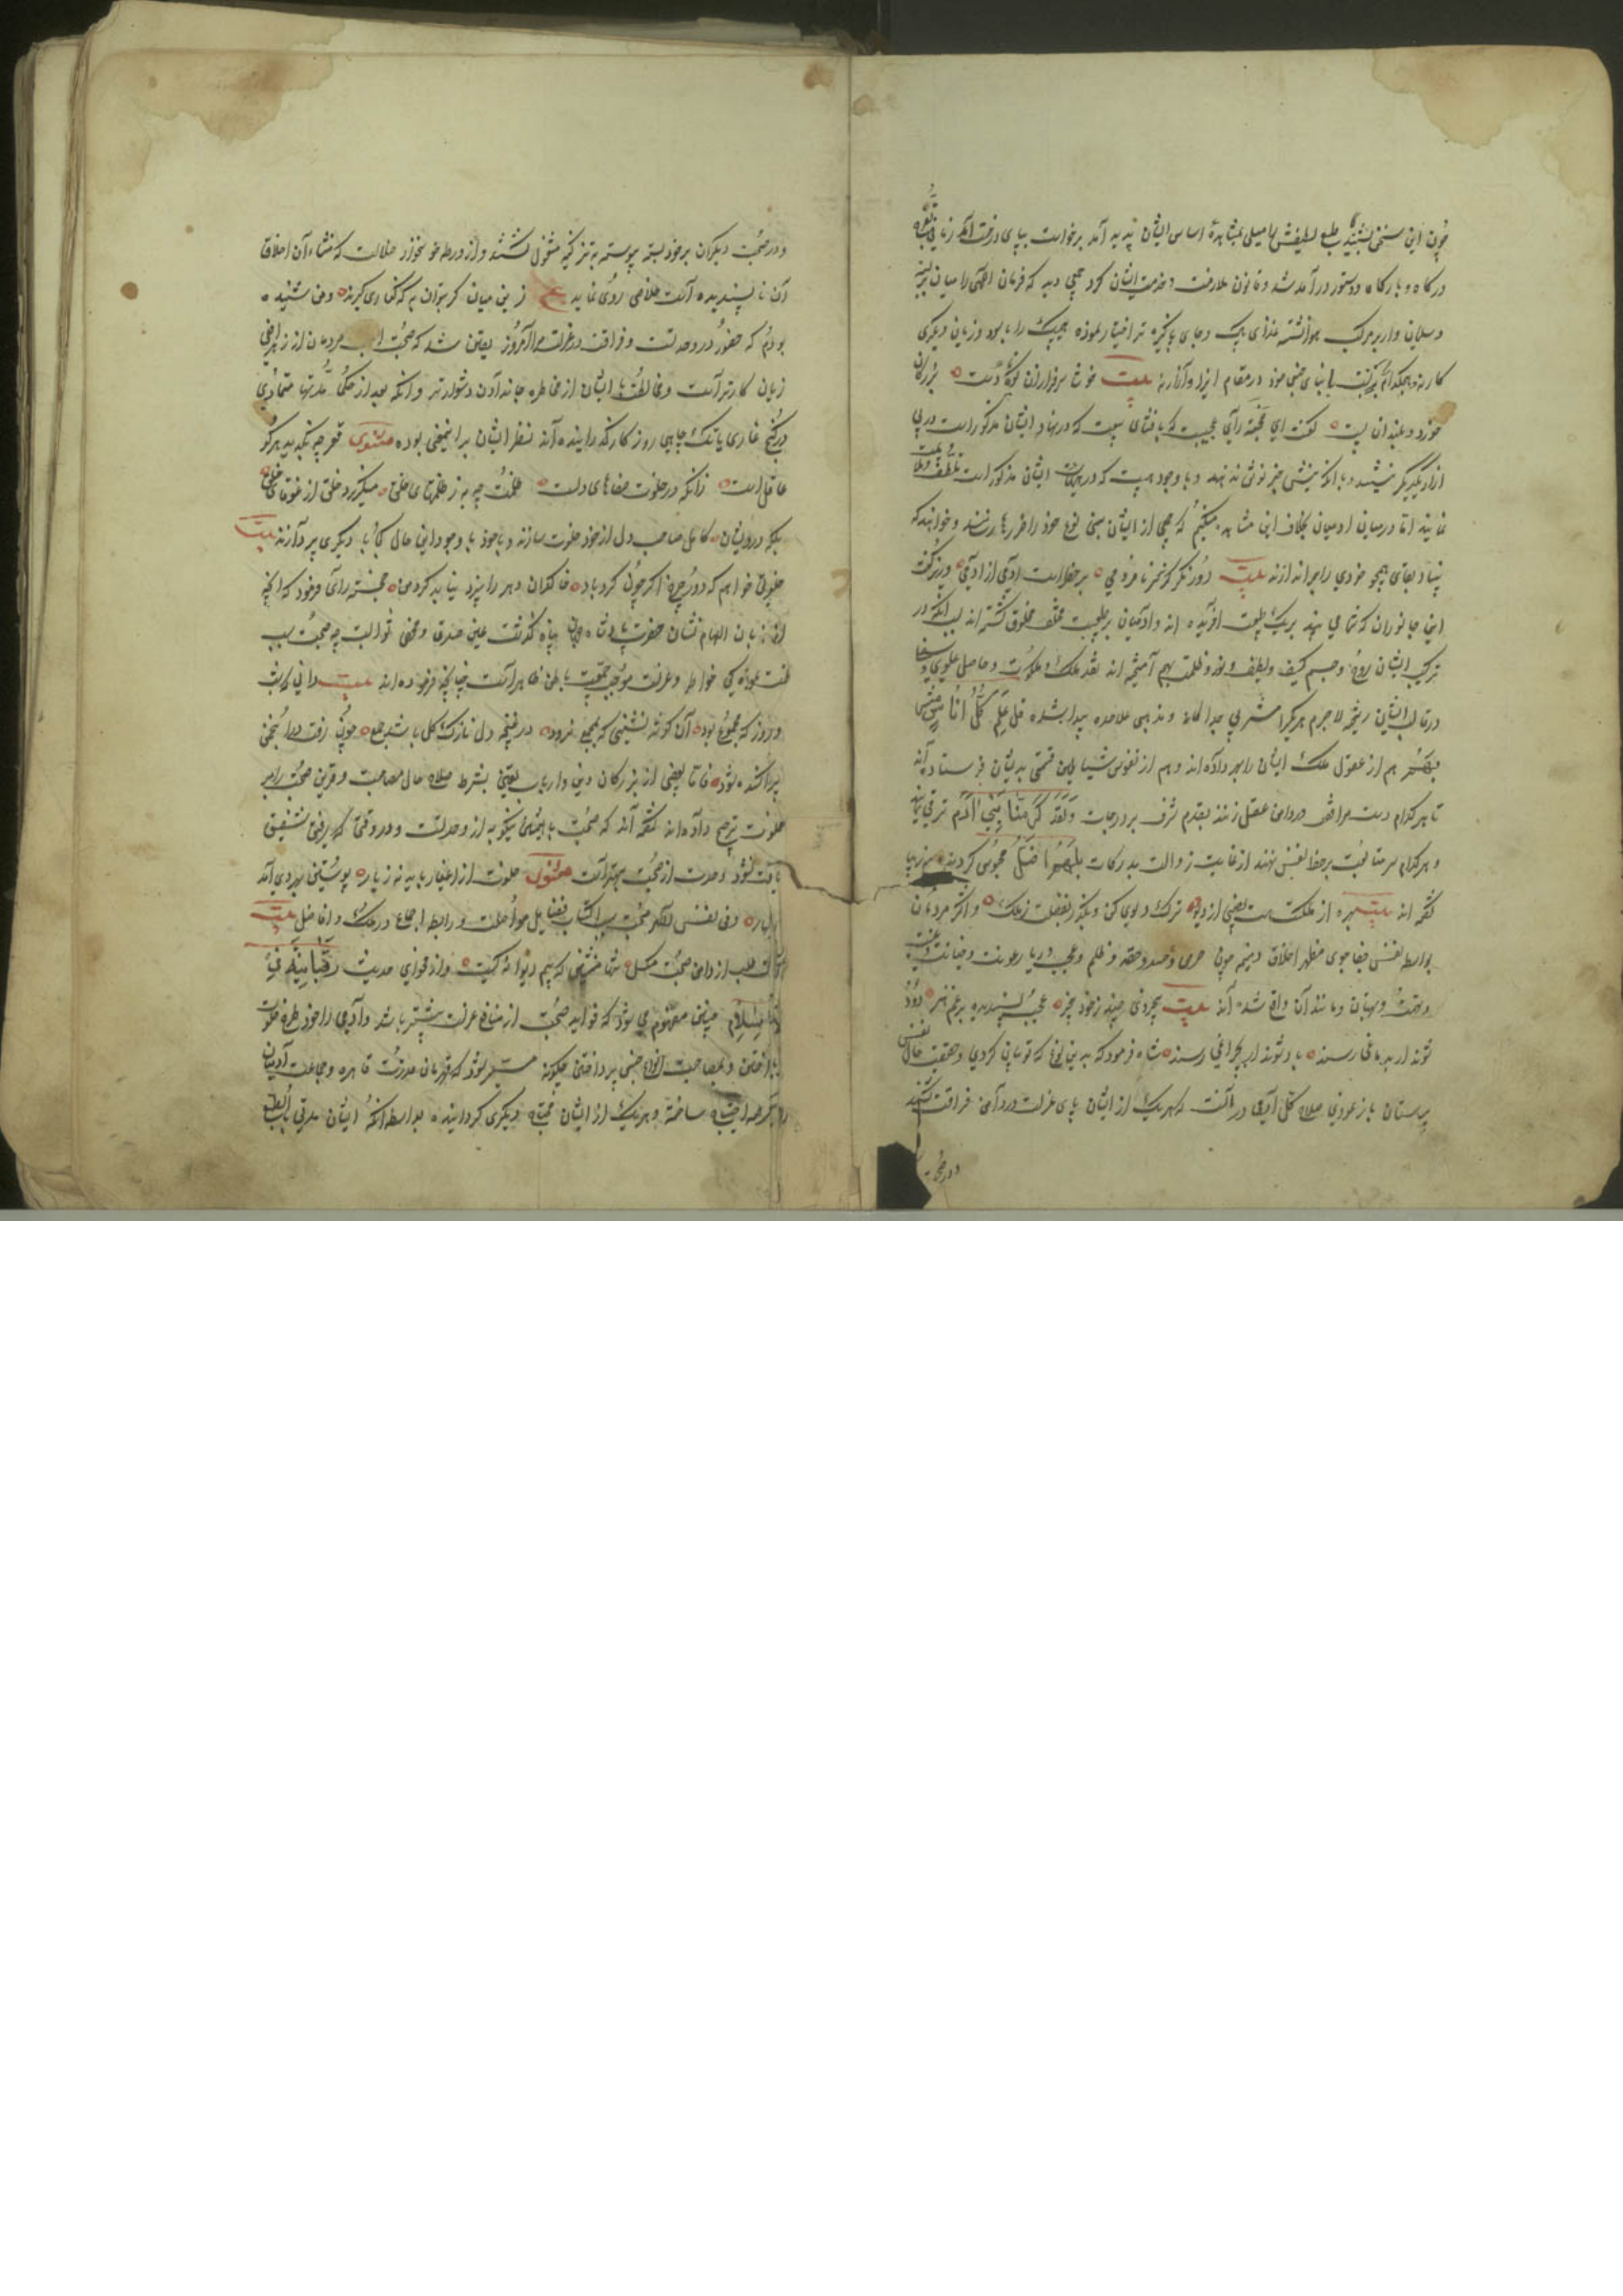 چون این سخن بشنید طبع لطیفش را میلی بمشاهدهٔ اساس ایشان پدید آمد برخواست بپای درخت آمد زمانی
درگاه و بارگاه و دستور در آمد شد و قانون ملازمت و خدمت ایشان کرد جمعی دید که فرمان الهی را میان بسته
و سلیمان وار بر مرکب هوا نشسته غذای پاک و جای پاکیزه تر اختیار نموده هیچیک را با بود و زیان دیگری
کار نه و هیچکدام را با ابنای جنس خود در مقام ایذا و آزار نه بیت بزرگان
خورد و بلند ان پست گفت ای خجسته رای عجیب که با
از یکدیگر
نمایند اما در میان ادمیان بخلاف این مشاهده میکنم که جمعی از ایشان بنی نوع خود را ضررها رسانند و خواهند که
بنیاد بقای همچو خودی را براندازند بیت دور نکر کز سر نامردمی بر حذر است آدمی از آدمی وزیر گفت
این جانوران که شما می بینید بر یک طبیعت آفریده اند و آدمیان بر طبیعت مختلف مخلوق گشته اند بسبب آنکه در
ترکیب ایشان روح و جسم کثیف و لطیف و نور و ظلمت بهم آمیخته اند نقد ملک و ملکوت و حاصل علوی و
در قالب ایشان ریخته لاجرم هر یکرا مشربی جداگانه و مذهبی علاحده پیدا شده قد علم کل اناس
مشربهم هم از عقول ملک ایشان را بهره داده اند و هم از نفوس شیاطین قسمتی بدیشان فرستاده اند
تا هر کدام دست در دامن عقل زنند بقدم شرف بر درجات ولقد کرمنا بنی آدم ترقی نمایند
و هر کدام سر متابعت بر خط نفس نهند از غایت بدرکات بل هم اضل
گفته اند بیت بهره از ملکت هست و نصیبی از دیو ترک دیوی کن و بگذر بفضیلت ز ملک و اکثر مردمان
بواسطه نفس جفا جوی مظهر اخلاق ذمیمه چون حرص و حسد و حقد و ظلم و عجب و ریا و رعونت و خیانت و غیبت
و تهمت و بهتان و مانند آن واقع شده اند بیت بیخردی چند ز خود بیخبر عیب پسندیده برغم هنر دود
شوند ار بدماغی رسند باد شوند ار بچراغی رسند شاه فرمود که بدین نوع که تو بیان کردی و حقیقت حال نفس
پرستان باز نمودی صلاح کل آدمی در آنست که هر یک از ایشان پای عزلت در دامن فراغت کشند
و در صحبت
و در صحبت دیگران بر خود بسته پیوسته بتزکیه مشغول گشته و از ورطه خو نخوار ضلالت که منشاء آن اخلاق
آن ناپسندیده است خلاصی روی نماید ع زین میان گر بتوان به که کناری گیرند و من شنیده
بودم که حضور در وحدتست و فراغت در عزلت مرا امروز یقین شد که صحبت مردمان از زهر افعی
زیان کارتر است و مخالطت با ایشان از مخاطره جان دادن دشوارتر و آنکه بعد از حکما مدتها متمادی
در کنج غاری یا تک چاهی روزگار گذرانیده اند نظر ایشان بر اینمعنی بوده مثنوی قعر چه بگزید هر کو
عاقل است زانکه در خلوت صفاهای دلست ظلمت چه به ز ظلمتهای خلق میگریزد خلق از غوغای خلق
بلکه درویشان کامل صاحب دل از خود خلوت سازند و با خود با وجود این حال کجا با دیگری پردازند بیت
خلوتی خواهم که دور چرخ اگر چون گردباد خاکدان دهر را بیزد نیابد گرد من خجسته رای فرمود که آنچه
از زبان الهام نشان حضرت پادشاه جهان پناه گذشت عین صدق و محض صوابست چه صحبت سبب
خواطر و عزلت موجب جمعیت باطن ظاهر است چنانچه فرموده اند بیت دانی که شب
و روز که مجموع بود آن گوشه نشینی که بجمع نرود در غنچه دل نازک گل باشد جمع چون رفت در انجمن
پراکنده شود فاما بعضی از بزرگان دین و ارباب یقین بشرط صلاح حال مصاحب و قرین صحبت را بر
خلوت ترجیح داده اند گفته اند که صحبت با همنشین نیکو به از وحدتست و در وقتی که رفیق شفیق
یافت نشود وحدت از صحبت بهتر است مثنوی خلوت از اغیار باید نه ز یار پوستین بهر دی آمد
نه بهار و فی نفس الامر صحبت سبب اکتساب فضایل مواصلت و رابطه اجماع در فضایل بیت
طلب از دامن صحبت مگسل تنها منشین که بیم دیوانگیست و از فحوای حدیث لا رهبانیة فی
الاسلام چنین مفهوم می شود که فواید صحبت از منافع عزلت بیشتر باشد و آدمی را خود طرح خلوت
انداختن و بمصاحبت انواع جنس پرداختن چگونه میسر شود که قهرمان قدرت قاهره و جماعت آدمیان
را احتیاج ساخته و هر یک از ایشان محتاج دیگری گردانیده بواسطه آنکه ایشان مدنی بالطبع